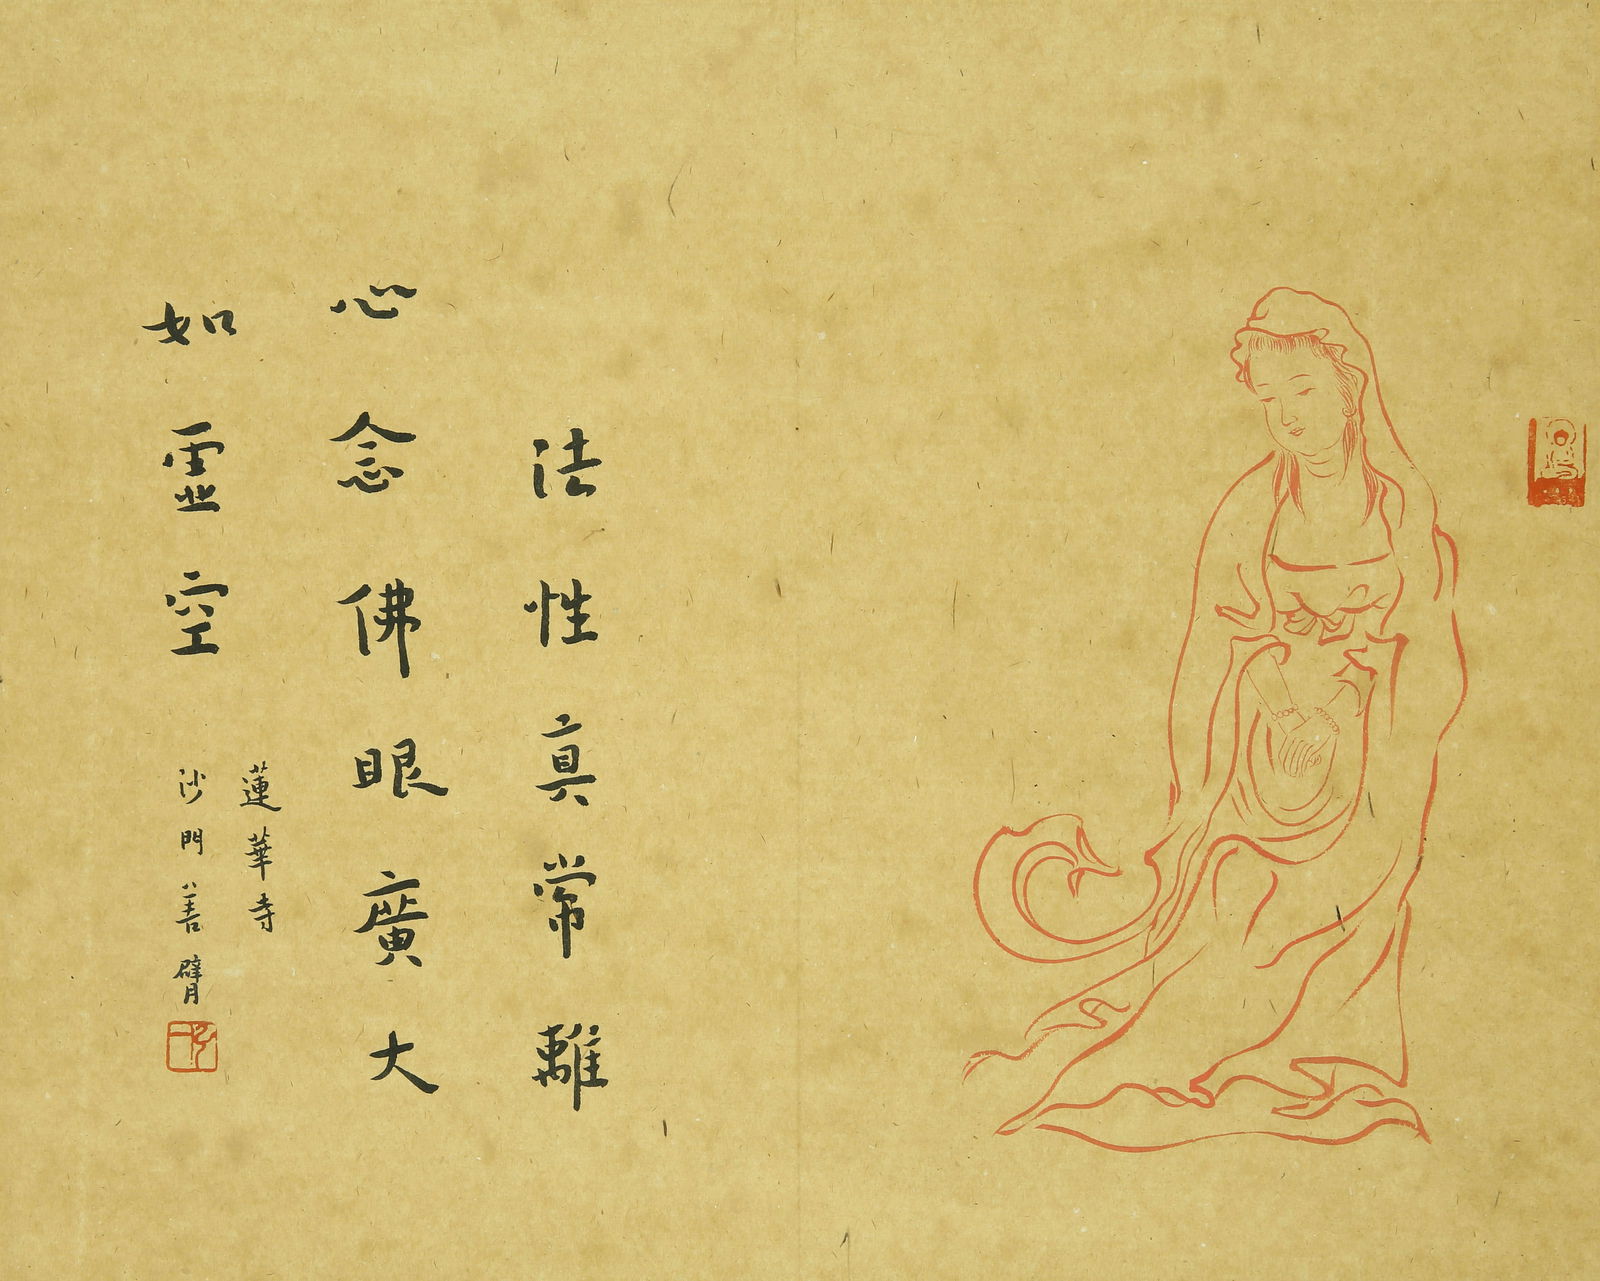 法性真常離
心念佛眼廣大
如虛空
蓮華寺
沙門善臂
弘一